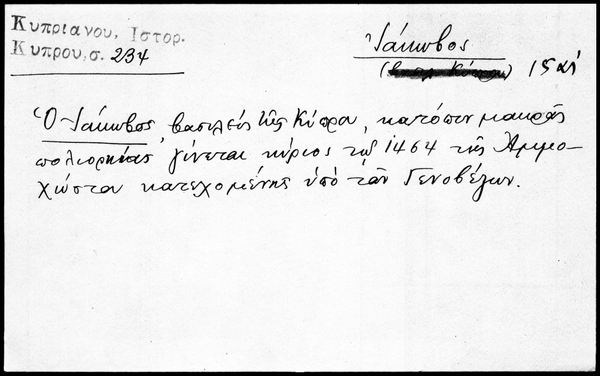 Κυπριανου, Ιστορ.
Κυπρου, σ. 234
Ἰάκωβος
15 αἰ
Ὁ Ἰάκωβος, βασιλεὺς τῆς Κύπρου, κατόπιν μακρᾶς
πολιορκίας γίνεται κύριος τῷ 1464 τῆς Ἀμμο-
χώστου κατεχομένης ὑπὸ τῶν Γενοβέζων.